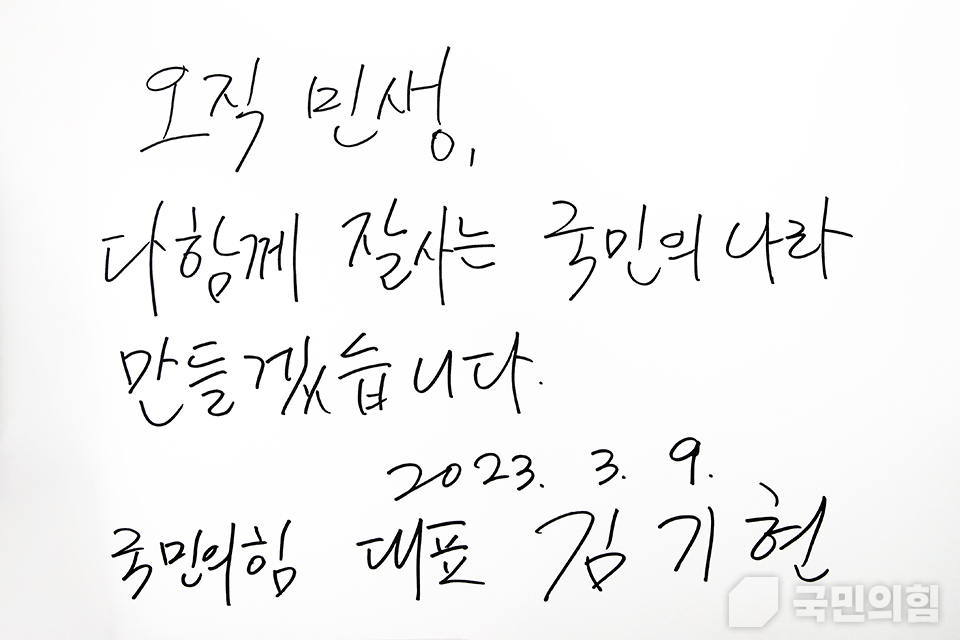 오직 민생,
다함께 잘사는 국민의 나라
만들겠습니다.
2023. 3. 9.
국민의힘 대표 김기현
국민의힘